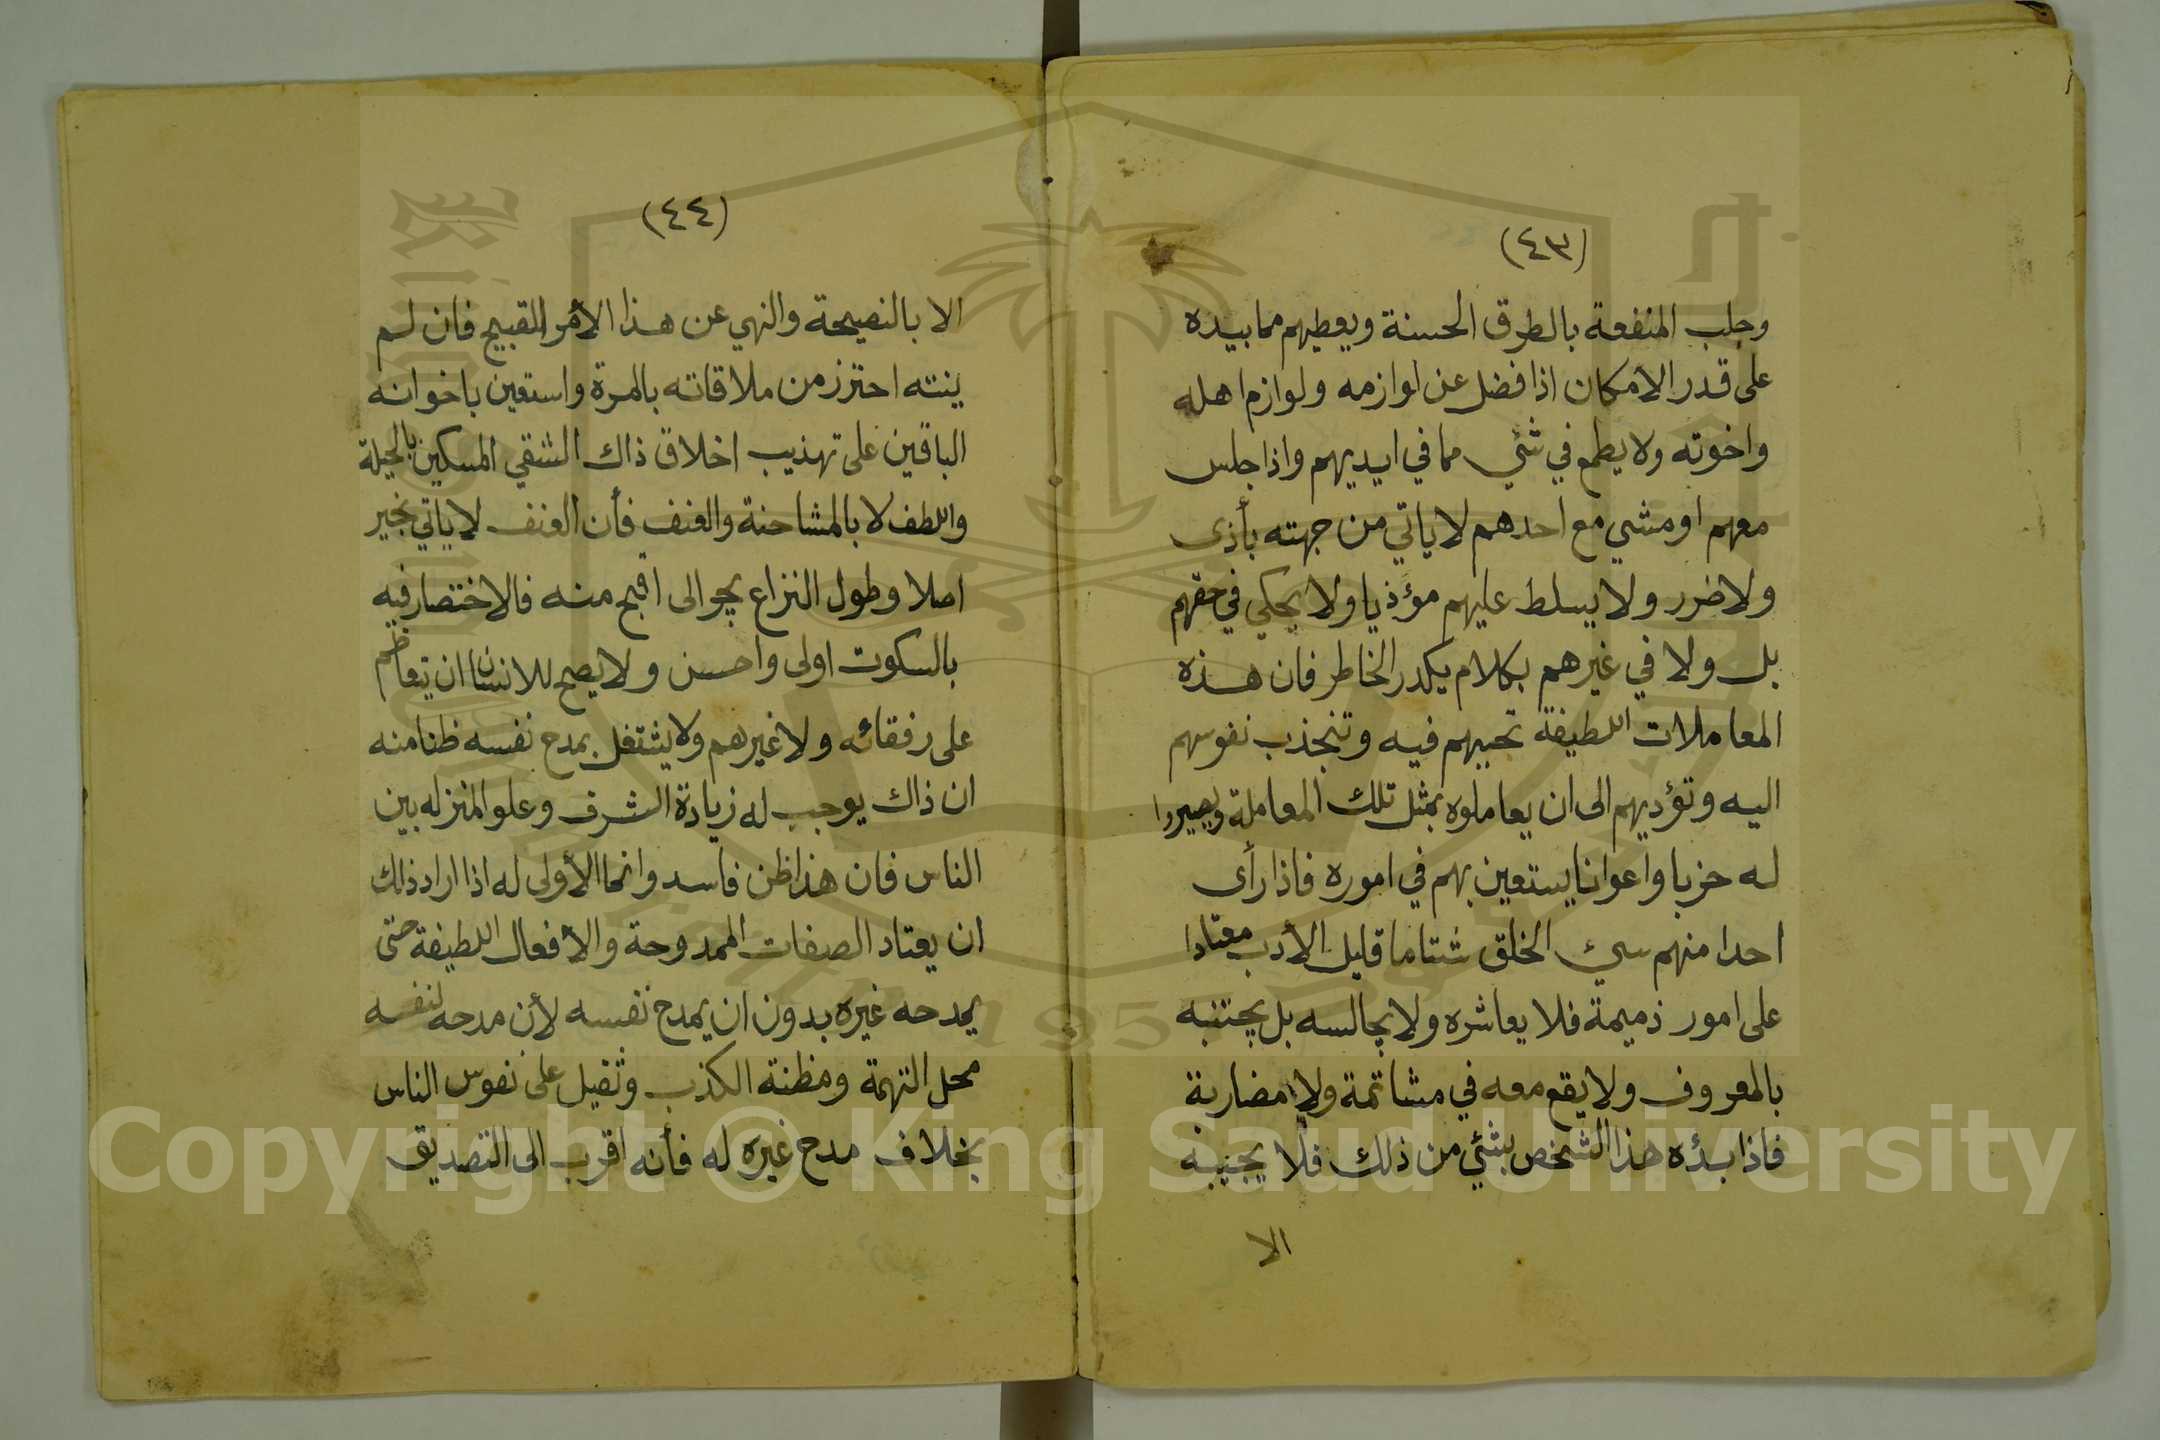 (٤٣)
وجلب المنفعة بالطرق الحسنة ويعطيهم مما بيده
على قدر الامكان اذا فضل عن لوازمه ولوازم اهله
واخوته ولا يطمع في شئي مما في ايديهم واذا جلس
معهم او مشي مع احدهم لا ياتي من جهته بأذى
ولا ضرر ولا يسلط عليهم مؤذيا ولا يحكي في حقهم
بل ولا في غيرهم بكلام يكدر الخاطر فان هذه
المعاملات اللطيفة تحببهم فيه وتنجذب نفوسهم
اليه وتؤديهم الى ان يعاملوه بمثل تلك المعاملة ويصيروا
له حزبا واعوانا يستعين بهم في اموره فاذا رأى
احدا منهم سيئ الخلق شتاما قليل الأدب معتادا
على امور ذميمة فلا يعاشره ولا يجالسه بل يجتنبه
بالمعروف ولا يقع معه في مشاتمة ولا مضاربة
فاذا بدؤه هذا الشخص بشئي من ذلك فلا يجيبه
الا
(٤٤)
الا بالنصيحة والنهي عن هذا الأمر القبيح فان لم
ينته احترز من ملاقاته بالمرة واستعين باخوانه
الباقين على تهذيب اخلاق ذاك الشقي المسكين بالحيلة
واللطف لا بالمشاحنة والعنف فأن العنف لا ياتي بخير
اصلا وطول النزاع يجر الى اقبح منه فالاختصار فيه
بالسكوت اولى واحسن ولا يصح للانسان ان يتعاظم
على رفقائه ولا غيرهم ولا يشتغل بمدح نفسه ظنا منه
ان ذاك يوجب له زيادة الشرف وعلو المنزله بين
الناس فان هذا ظن فاسد وانما الأولى له اذا اراد ذلك
ان يعتاد الصفات الممدوحة والأفعال اللطيفة حتى
يمدحه غيره بدون ان يمدح نفسه لأن مدحه لنفسه
محل التهمة ومظنة الكذب وثقيل على نفوس الناس
بخلاف مدح غيره له فأنه اقرب الى التصديق
Copyright © King Saud University